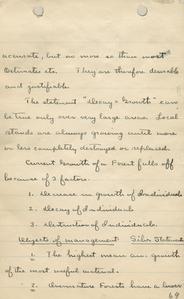 accurate, but no more so than most
Estimates etc. They are therefore desirable
and justifiable.
The statement "Decay = Growth" can
be true only over very large areas. Local
stands are always growing until more
or less completely destroyed or replaced.
Current Growth of a Forest falls off
because of 3 factors.
1. Decrease in growth of Individuals
2. Decay of Individuals
3. Destruction of Individuals.
Objects of management
1. The highest mean ann. growth
of the most useful material.
2. Immature Forests have a lower
69